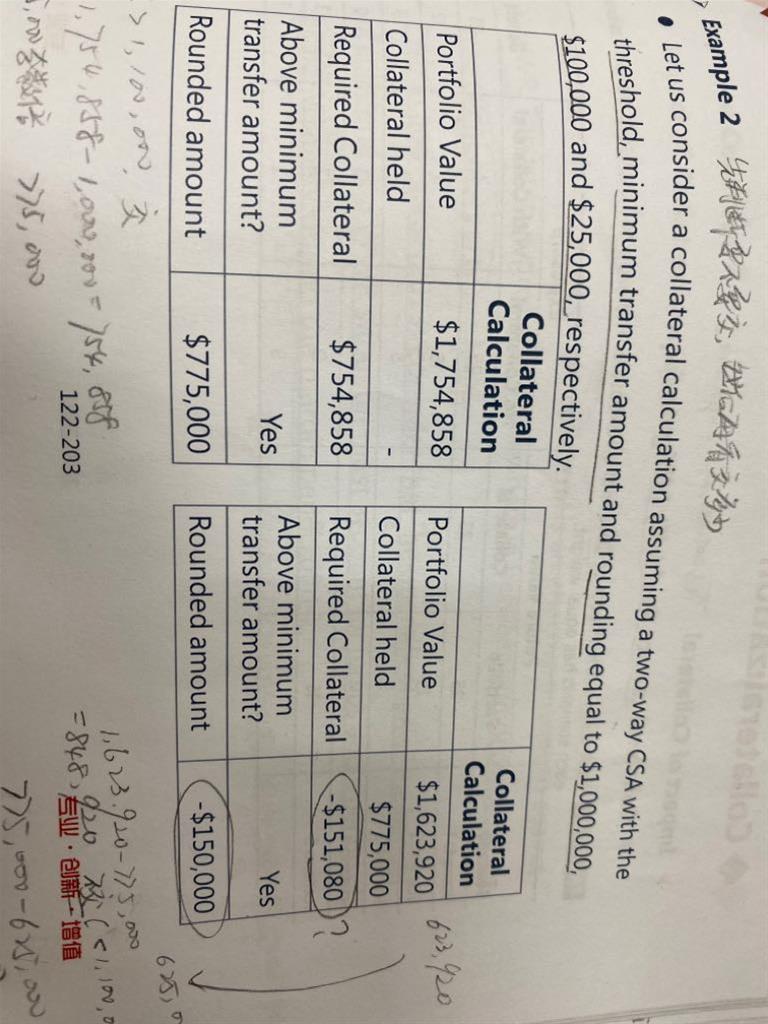 Example 2 先判断要不要交,
• Let us consider a collateral calculation assuming a two-way CSA with the
threshold, minimum transfer amount and rounding equal to $1,000,000,
$100,000 and $25,000, respectively.
Collateral
Calculation
Portfolio Value $1,754,858
Collateral held -
Required Collateral $754,858
Above minimum
transfer amount? Yes
Rounded amount $775,000
Collateral
Calculation
Portfolio Value $1,623,920
Collateral held $775,000
Required Collateral -$151,080 ?
Above minimum
transfer amount? Yes
Rounded amount -$150,000
623,920
625,0
>1,100,000, 交
1,754,858-1,000,000=754,858
775,000
122-203
1,623,920-775,000
=848,920 (<1,100,0
专业·创新·增值
775,000-625,000